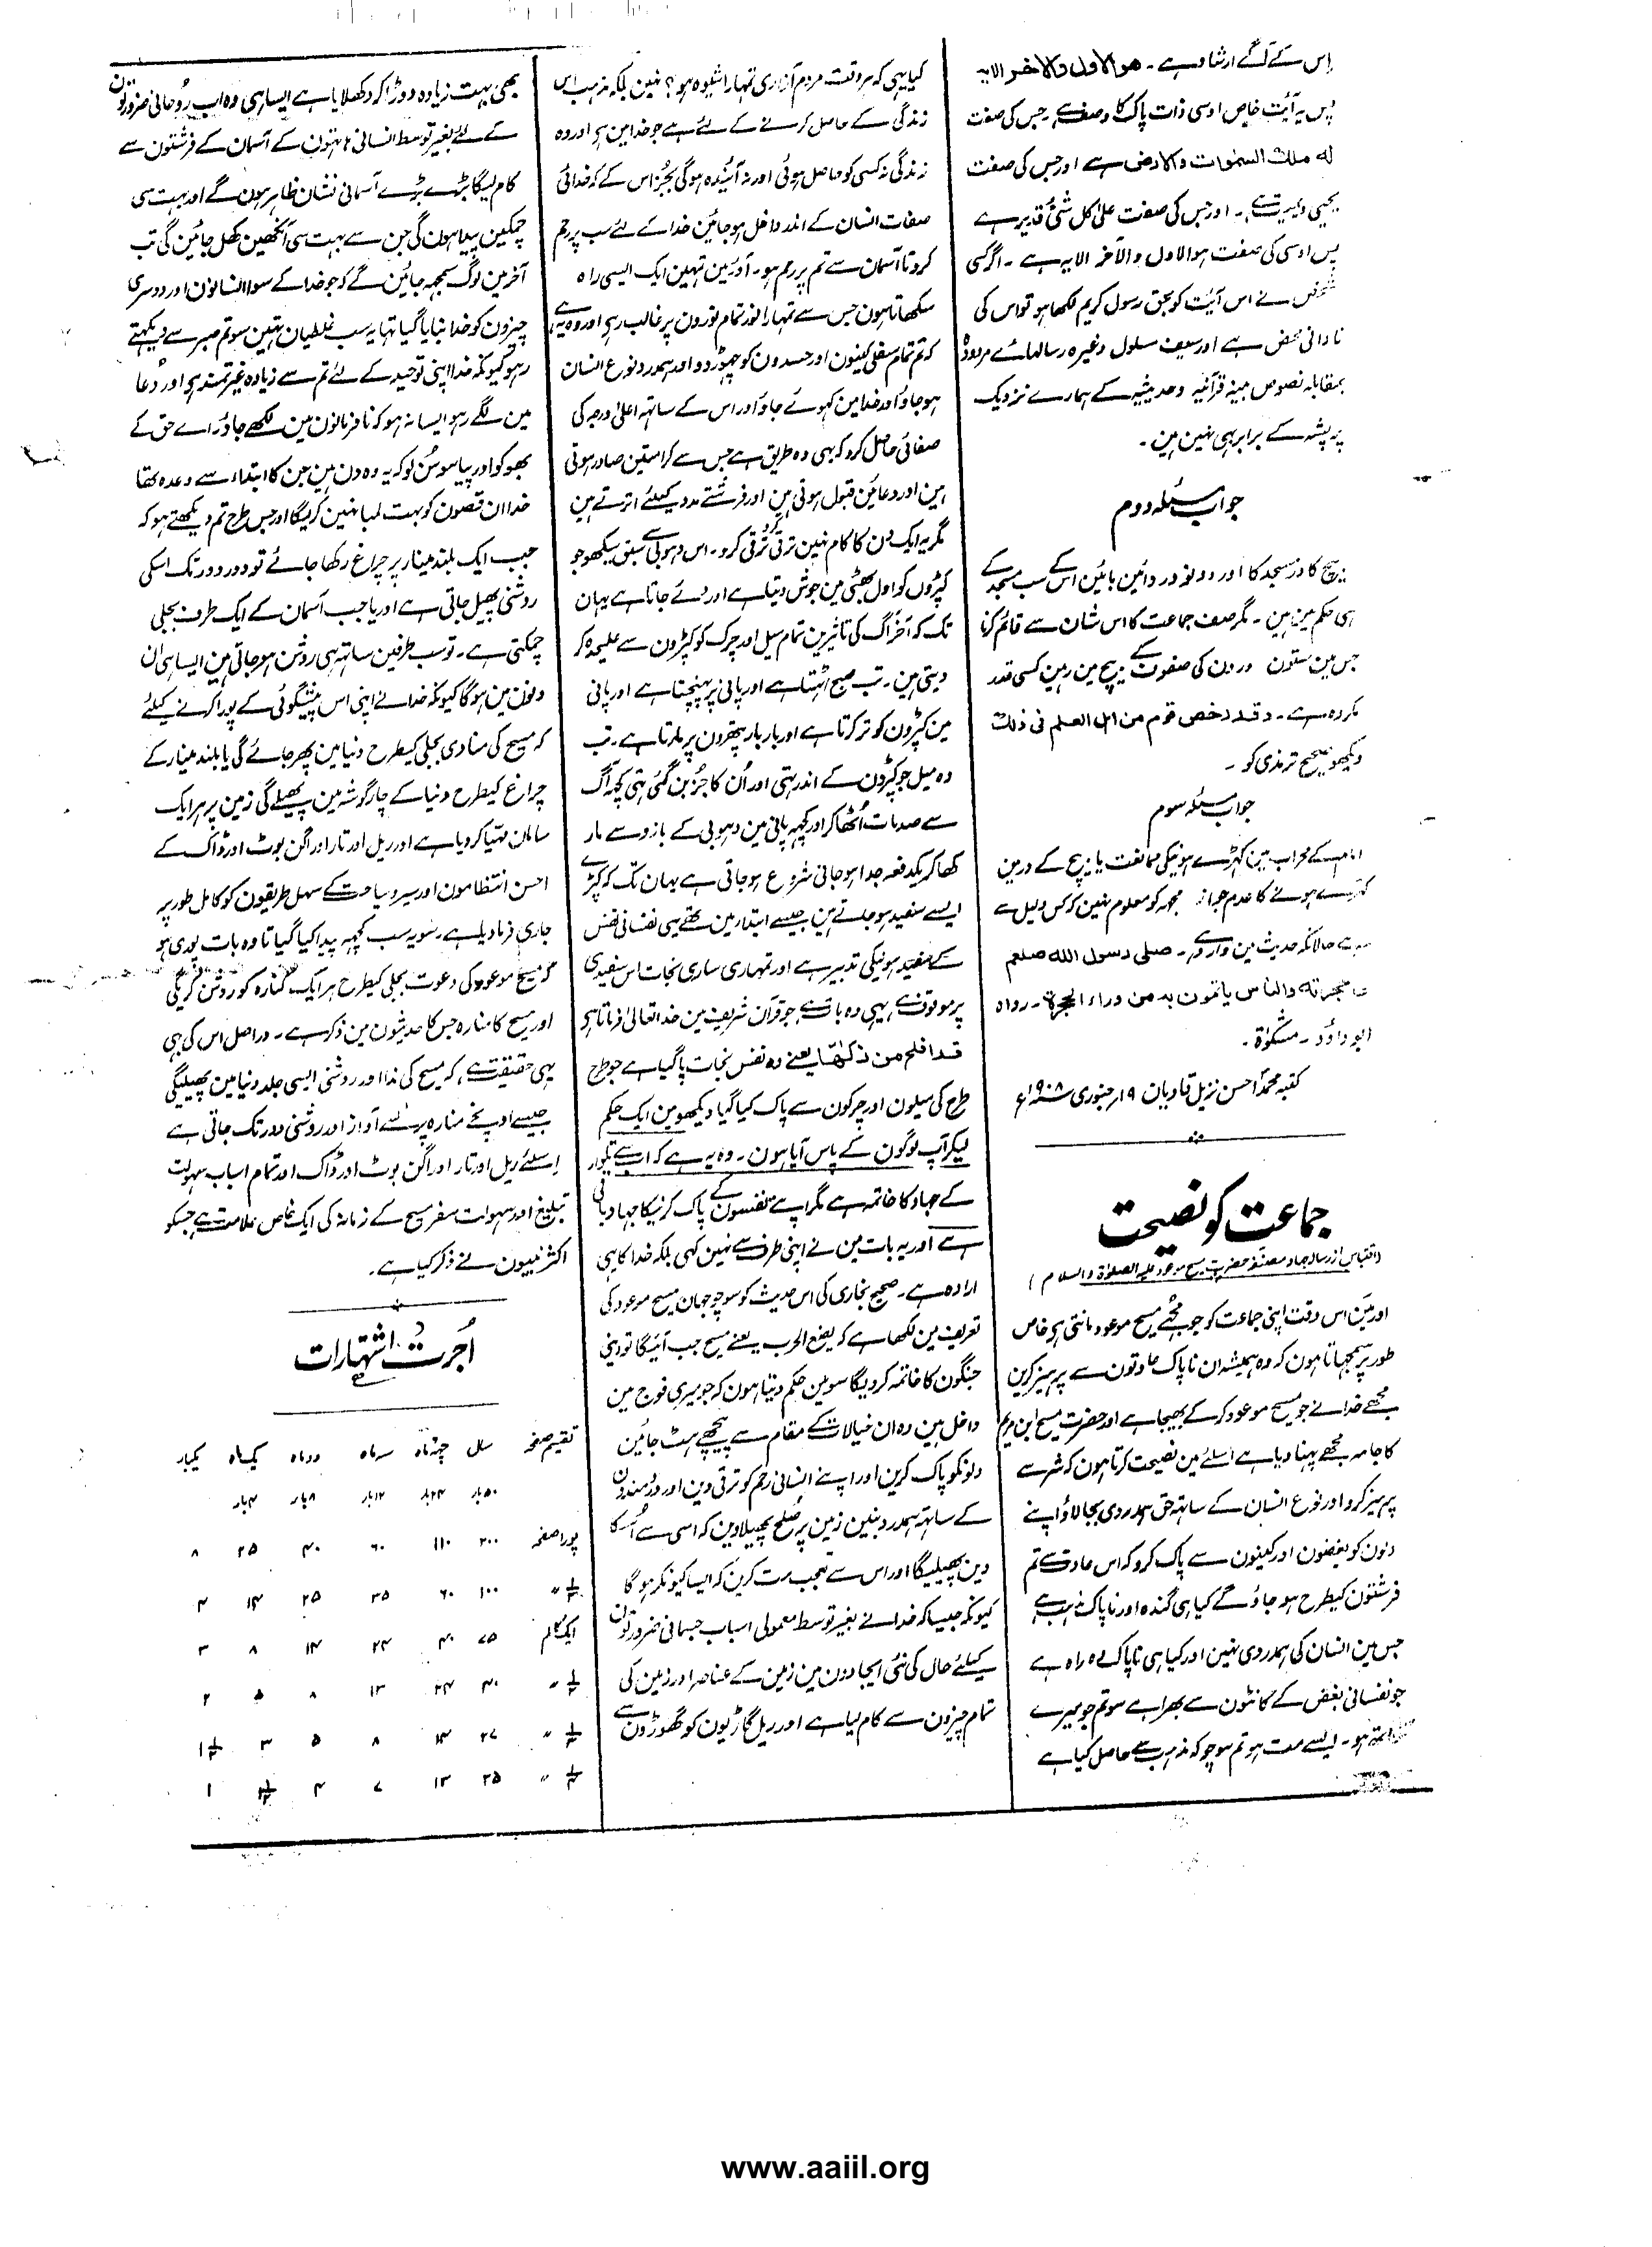 اس کے آگے ارشاد ہے۔ هو الاول والاخر الایه
پس یہ آیت خاص اوسی ذات پاک کا وصف ہے جس کی صفت
له ملك السموات والارض ہے اور جس کی صفت
یحیی ویمیت ہے۔ اور جس کی صفت علی کل شیء قدیر ہے
پس اوسی کی صفت ہو الاول و الآخر الایہ ہے۔ اگر کسی
شخص نے اس آیت کو بحق رسول کریم لکھا ہو تو اس کی
نادانی محض ہے اور سیف مسلول وغیرہ رسالہائے مردودہ
بمقابلہ نصوص مبینہ قرآنیہ وحدیثیہ کے ہمارے نزدیک
پر پشہ کے برابر بہی نہین ہین۔
جواب مسئلہ دوم
بیچ کا در مسجد کا اور دونو در دائین بائین اس کے سب مسجد کے
ہی حکم مین ہین۔ مگر صف جماعت کا اس شان سے قائم کرنا
جس مین ستون ودرون کی صفون کے بیچ مین رہین کسی قدر
مکروہ ہے۔ وقد رخص قوم من اہل العلم فی ذلك
دیکھو صحیح ترمذی کو۔
جواب مسئلہ سوم
امام کے محراب مین کہڑے ہونیکی ممانعت یا بیچ کے در مین
کہڑے ہونے کا عدم جواز مجہہ کو معلوم نہین کہ کس دلیل سے
ہے حالانکہ حدیث مین وارد ہے۔ صلی رسول الله صلعم
فی حجرته والناس یاتمون به من وراء الحجرة۔ رواہ
ابو داؤد۔ مشکوٰة۔
کتبہ محمد احسن نزیل قادیان ۱۹ر جنوری سنہ ۱۹۰۸ء
جماعت کو نصیحت
(اقتباس از رسالہ جہاد مصنفہ حضرت مسیح موعود علیہ الصلوٰة والسلام)
اور مین اس وقت اپنی جماعت کو جو مجھے مسیح موعود مانتی ہی خاص
طور پر سمجہاتا ہون کہ وہ ہمیشہ ان ناپاک عادتون سے پرہیز کرین
مجھے خدا نے جو مسیح موعود کر کے بھیجا ہے اور حضرت مسیح ابن مریم
کا جامہ مجھے پہنا دیا ہے اسلئے مین نصیحت کرتا ہون کہ شر سے
پرہیز کرو اور نوع انسان کے ساتہہ حق ہمدردی بجا لاؤ اپنے
دلون کو بغضون اور کینون سے پاک کرو کہ اس عادت سے تم
فرشتون کیطرح ہو جاؤ گے کیا ہی گندہ اور ناپاک وہ مذہب ہے
جس مین انسان کی ہمدردی نہین اور کیا ہی ناپاک وہ راہ ہے
جو نفسانی بغض کے کانٹون سے بھرا ہے سو تم جو میرے
ساتہہ ہو۔ ایسے مت ہو تم سوچو کہ مذہب سے حاصل کیا ہے
کیا یہی کہ ہر وقت مردم آزاری تمہارا شیوہ ہو؟ نہین بلکہ مذہب اس
زندگی کے حاصل کرنے کے لئے ہے جو خدا مین ہی اور وہ
زندگی نہ کسی کو حاصل ہوئی اور نہ آئیندہ ہو گی بجز اس کے کہ خدائی
صفات انسان کے اندر داخل ہو جائین خدا کے لئے سب پر رحم
کرو تا آسمان سے تم پر رحم ہو۔ آؤ مین تمہین ایک ایسی راہ
سکھاتا ہون جس سے تمہارا نور تمام نورون پر غالب رہی اور وہ یہ ہے
کہ تم تمام سفلی کینون اور حسدون کو چھوڑ دو اور ہمدرد نوع انسان
ہو جاؤ اور خدا مین کہوئے جاؤ اور اس کے ساتہہ اعلیٰ درجہ کی
صفائی حاصل کرو کہ یہی وہ طریق ہے جس سے کرامتین صادر ہوتی
ہین اور دعائین قبول ہوتی ہین اور فرشتے مدد کیلئے اترتے ہین
مگر یہ ایک دن کا کام نہین ترقی کرو ترقی کرو۔ اس دہوبی سے سبق سیکھو جو
کپڑون کو اول بھٹی مین جوش دیتا ہے اور دئے جاتا ہے یہان
تک کہ آخر آگ کی تاثیرین تمام میل اور چرک کو کپڑون سے علیحدہ کر
دیتی ہین۔ تب صبح اٹہتا ہے اور پانی پر پہنچتا ہے اور پانی
مین کپڑون کو تر کرتا ہے اور بار بار پتھرون پر مارتا ہے۔ تب
وہ میل جو کپڑون کے اندر تہی اور اُن کا جُز بن گئی تہی کچہہ آگ
سے صدمات اُٹھا کر اور کچہہ پانی مین دہوبی کے بازو سے مار
کھا کر یکدفعہ جدا ہو جانی شروع ہو جاتی ہے یہان تک کہ کپڑے
ایسے سفید ہو جاتے ہین جیسے ابتدا مین تھے یہی نفسانی نفس
کے سفید ہونیکی تدبیر ہے اور تمہاری ساری نجات اس سفیدی
پر موقوف ہے یہی وہ بات ہے جو قرآن شریف مین خدا تعالیٰ فرماتا ہی
قد افلح من زکٰها یعنے وہ نفس نجات پا گیا ہے جو طرح
طرح کی میلون اور چرکون سے پاک کیا گیا دیکھو مین ایک حکم
لیکر آپ لوگون کے پاس آیا ہون۔ وہ یہ ہے کہ اب سے تلوار
کے جہاد کا خاتمہ ہے مگر اپنے نفسون کے پاک کرنیکا جہاد باقی
ہے اور یہ بات مین نے اپنی طرف سے نہین کہی بلکہ خدا کا یہی
ارادہ ہے۔ صحیح بخاری کی اس حدیث کو سوچو جہان مسیح موعود کی
تعریف مین لکھا ہے کہ یضع الحرب یعنے مسیح جب آئیگا تو دینی
جنگون کا خاتمہ کر دیگا سو مین حکم دیتا ہون کہ جو میری فوج مین
داخل ہین وہ ان خیالات کے مقام سے پیچھے ہٹ جائین
دلونکو پاک کرین اور اپنے انسانی رحم کو ترقی دین اور دردمندون
کے ساتہہ ہمدرد بنین زمین پر صُلح پھیلاوین کہ اسی سے اُنکا
دین پھیلیگا اور اس سے تعجب مت کرین کہ ایسا کیونکر ہو گا
کیونکہ جیسا کہ خدا نے بغیر توسط معمولی اسباب جسمانی ضرورتون
کیلئے حال کی نئی ایجادون مین زمین کے عناصر اور زمین کی
تمام چیزون سے کام لیا ہے اور ریل گاڑیون کو گھوڑون سے
بھی بہت زیادہ دوڑا کر دکھلایا ہے ایسا ہی وہ اب رُوحانی ضرورتون
کے لئے بغیر توسط انسانی ہاتہون کے آسمان کے فرشتون سے
کام لیگا بڑے بڑے آسمانی نشان ظاہر ہون گے اور بہت سی
چمکین پیدا ہون گی جن سے بہت سی آنکھین کھل جائین گی تب
آخر مین لوگ سمجہہ جائین گے کہ جو خدا کے سوا انسانون اور دوسری
چیزون کو خدا بنایا گیا تہا یہ سب غلطیان تہین سو تم صبر سے دیکہتے
رہو کیونکہ خدا اپنی توحید کے لئے تم سے زیادہ غیرتمند ہی اور دُعا
مین لگے رہو ایسا نہ ہو کہ نافرمانون مین لکھے جاؤ اے حق کے
بھوکو اور پیاسو سُن لو کہ یہ وہ دن ہین جن کا ابتداء سے وعدہ تھا
خدا ان قصون کو بہت لمبا نہین کریگا اور جس طرح تم دیکھتے ہو کہ
جب ایک بلند مینار پر چراغ رکھا جائے تو دور دور تک اسکی
روشنی پھیل جاتی ہے اور یا جب آسمان کے ایک طرف بجلی
چمکتی ہے۔ تو سب طرفین ساتہہ ہی روشن ہو جاتی ہین ایسا ہی ان
دنون مین ہو گا کیونکہ خدا نے اپنی اس پیشگوئی کے پورا کرنے کیلئے
کہ مسیح کی منادی بجلی کیطرح دنیا مین پھر جائے گی یا بلند مینار کے
چراغ کیطرح دنیا کے چار گوشہ مین پھیلے گی زمین پر ہر ایک
سامان مہیا کر دیا ہے اور ریل اور تار اور اگن بوٹ اور ڈاک کے
احسن انتظامون اور سیر و سیاحت کے سہل طریقون کو کامل طور پر
جاری فرما دیا ہے۔ سو یہ سب کچہہ پیدا کیا گیا تا وہ بات پوری ہو
کہ مسیح موعود کی دعوت بجلی کیطرح ہر ایک کنارہ کو روشن کریگی
اور مسیح کا منارہ جس کا حدیثون مین ذکر ہے۔ دراصل اس کی بہی
یہی حقیقت ہے، کہ مسیح کی ندا اور روشنی ایسی جلد دنیا مین پھیلیگی
جیسے اونچے منارہ پر سے آواز اور روشنی دور تک جاتی ہے
اسلئے ریل اور تار اور اگن بوٹ اور ڈاک اور تمام اسباب سہولت
تبلیغ اور سہولت سفر مسیح کے زمانہ کی ایک خاص علامت ہے جسکو
اکثر نبیون نے ذکر کیا ہے۔
اُجرت اشتہارات
تقسیم صفحہ سال چھ ماہ سہ ماہ دو ماہ یک ماہ یکبار
۵۰بار ۲۴بار ۱۲بار ۸بار ۴بار
پورا صفحہ ۲۰۰ ۱۱۰ ۶۰ ۴۰ ۲۵ ۸
½ " ۱۰۰ ۶۰ ۳۵ ۲۵ ۱۴ ۴
ایک کالم ۷۵ ۴۰ ۲۴ ۱۴ ۸ ۳
½ " ۴۰ ۲۴ ۱۳ ۸ ۵ ۲
" ۲۷ ۱۴ ۸ ۵ ۳ ۱½
¼ " ۲۵ ۱۳ ۷ ۴ ۲½ ۱
www.aaiil.org